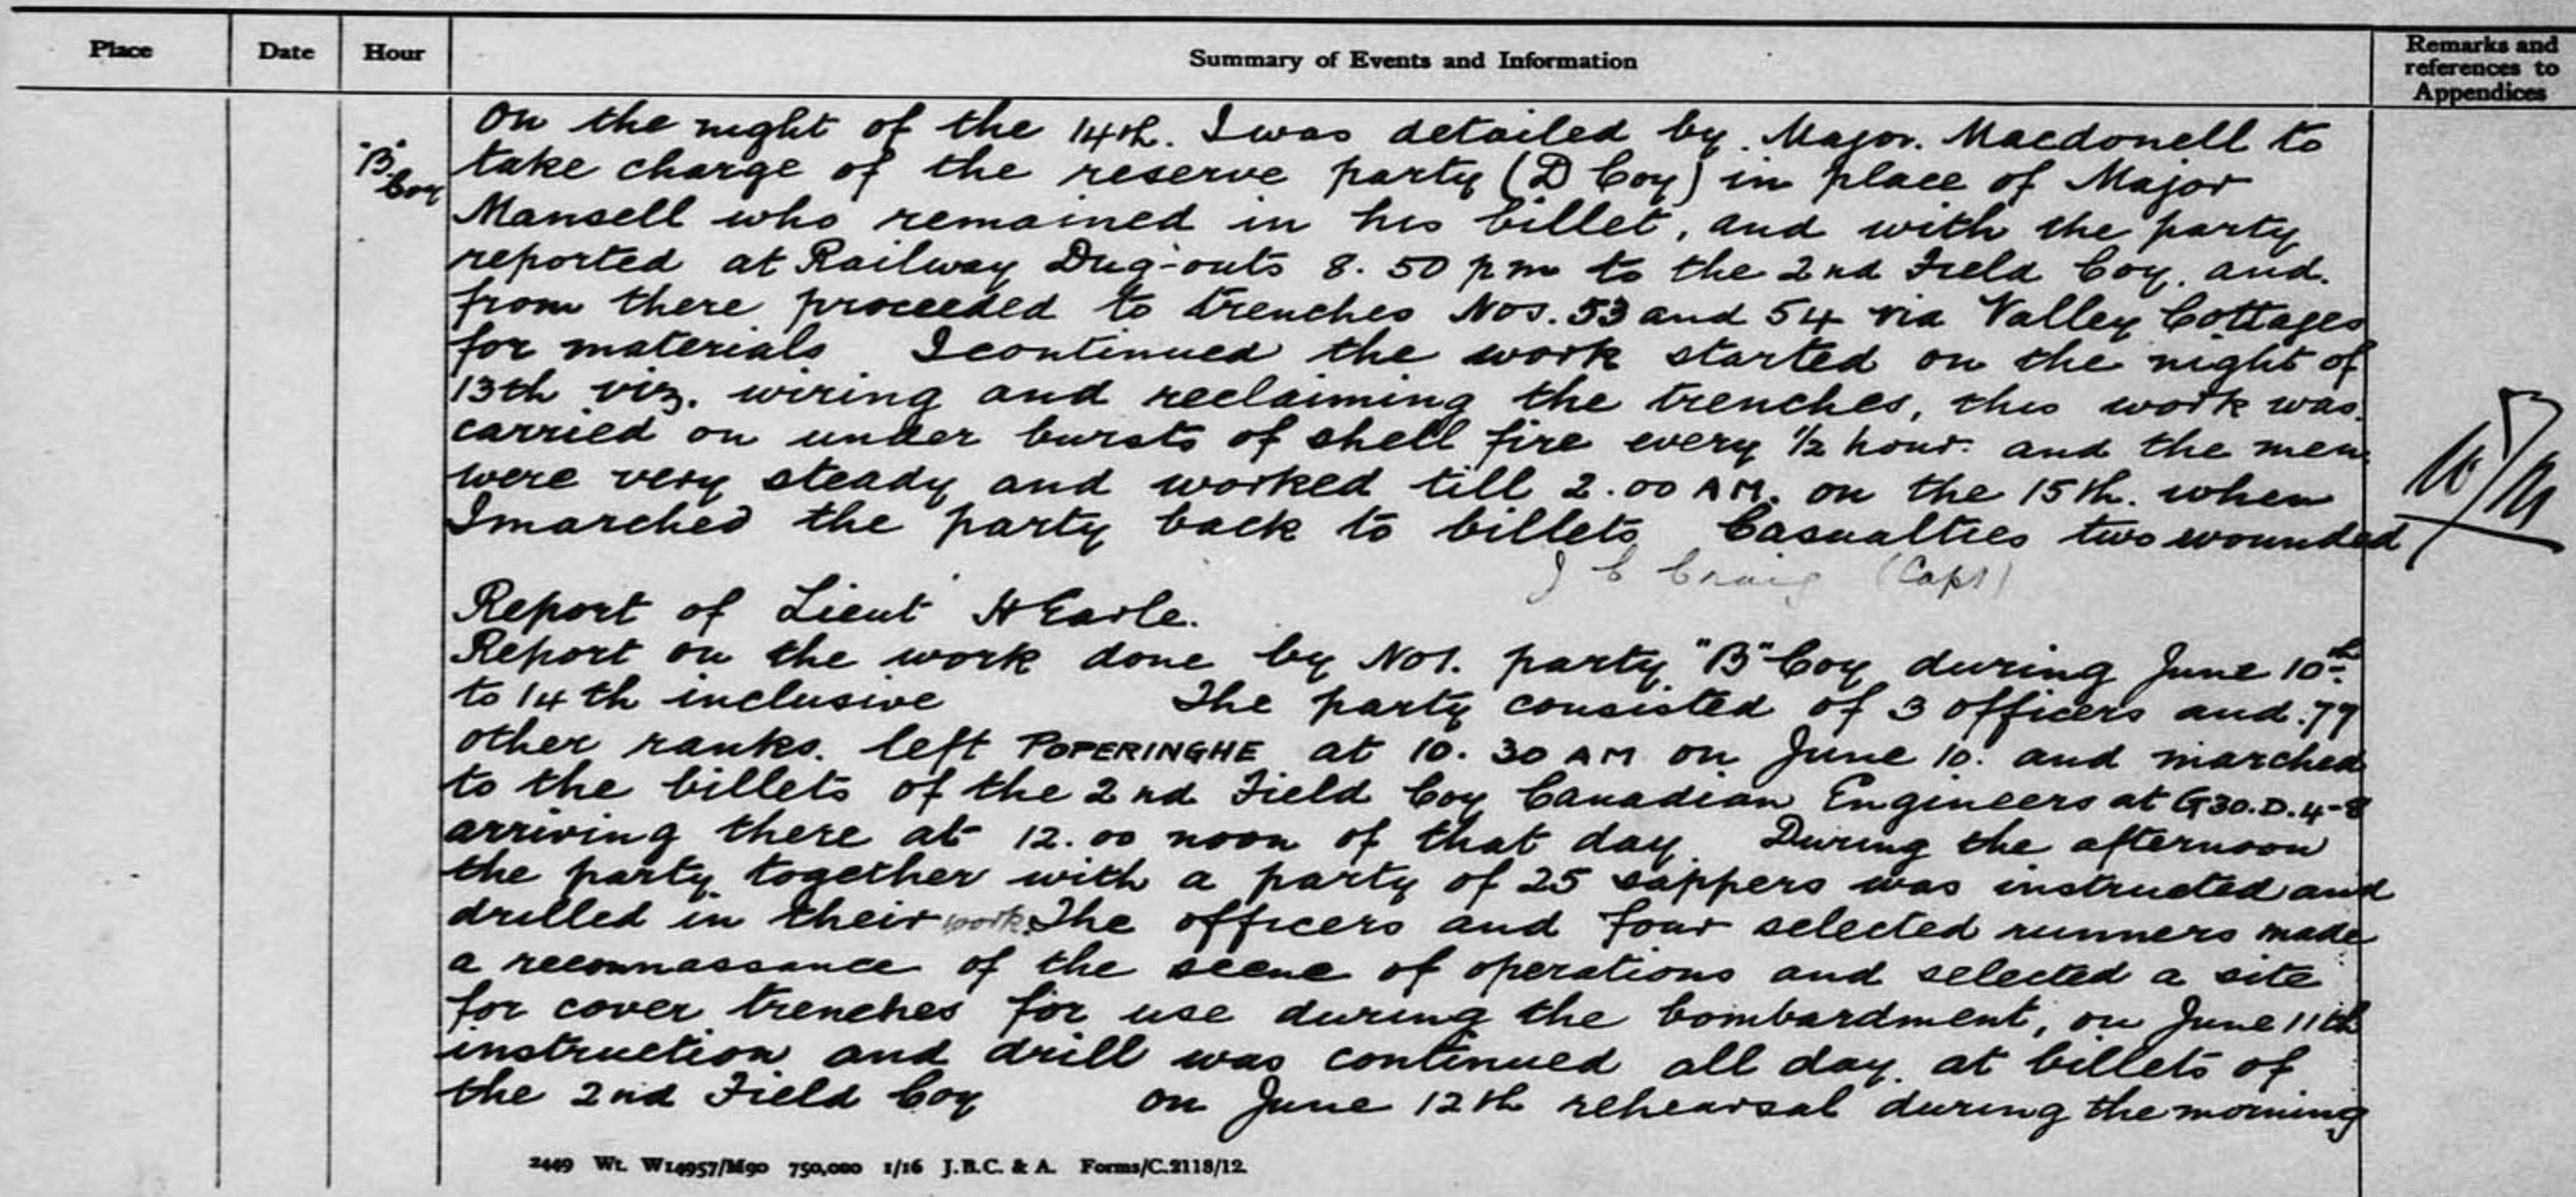 Place Date Hour Summary of Events and Information Remarks and references to Appendices
On the night of the 14th. I was detailed by Major. Macdonell to
"B" Coy
take charge of the reserve party (D Coy) in place of Major
Mansell who remained in his billet, and with the party
reported at Railway Dug-outs 8.50 pm to the 2nd Field Coy. and.
from there proceeded to trenches Nos. 53 and 54 via Valley Cottages
for materials I continued the work started on the night of
13th viz. wiring and reclaiming the trenches, this work was
carried on under bursts of shell fire every 1/2 hour. and the men
were very steady and worked till 2.00 AM. on the 15th. when
I marched the party back to billets Casualties two wounded
J C Craig (Capt)
Report of Lieut H Earle.
Report on the work done by No1. party "B" Coy during June 10th
to 14th inclusive The party consisted of 3 officers and 79
other ranks. left POPERINGHE at 10.30 AM on June 10. and marched
to the billets of the 2nd Field Coy Canadian Engineers at G30.D.4-8
arriving there at 12.00 noon of that day. During the afternoon
the party together with a party of 25 sappers was instructed and
drilled in their work. The officers and four selected runners made
a reconnassance of the scene of operations and selected a site
for cover trenches for use during the bombardment, on June 11th
instruction and drill was continued all day. at billets of
the 2nd Field Coy on June 12th rehearsal during the morning
2449 Wt. W14957/M90 750,000 1/16 J.B.C. & A. Forms/C.2118/12.